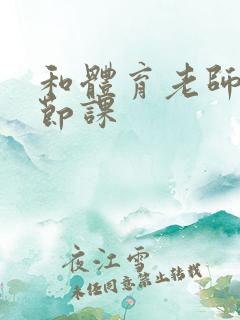 和體育老師
節課
夜江雪
未经同意禁止转载